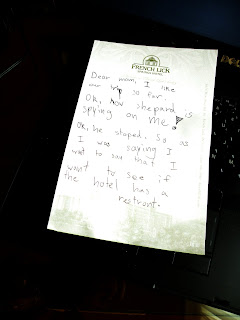 FRENCH LICK
Dear mom, I like
our trip so far.
Ok, now shepard is
spying on me!
Ok, he stoped. So as
I was saying I
want to say that I
want to see if
the hotel has a
restront.